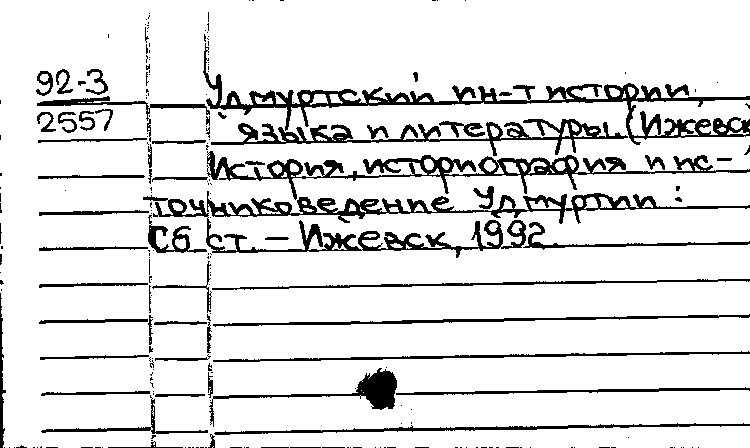 92-3
2557
Удмуртский ин-т истории,
языка и литературы. (Ижевск)
История, историография и ис-
точниковедение Удмуртии :
Сб ст. – Ижевск, 1992.